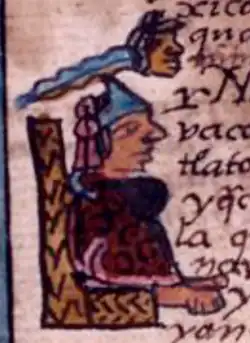 xica
qua
y N
vaca
tlato
y q̃
la q
y
yan